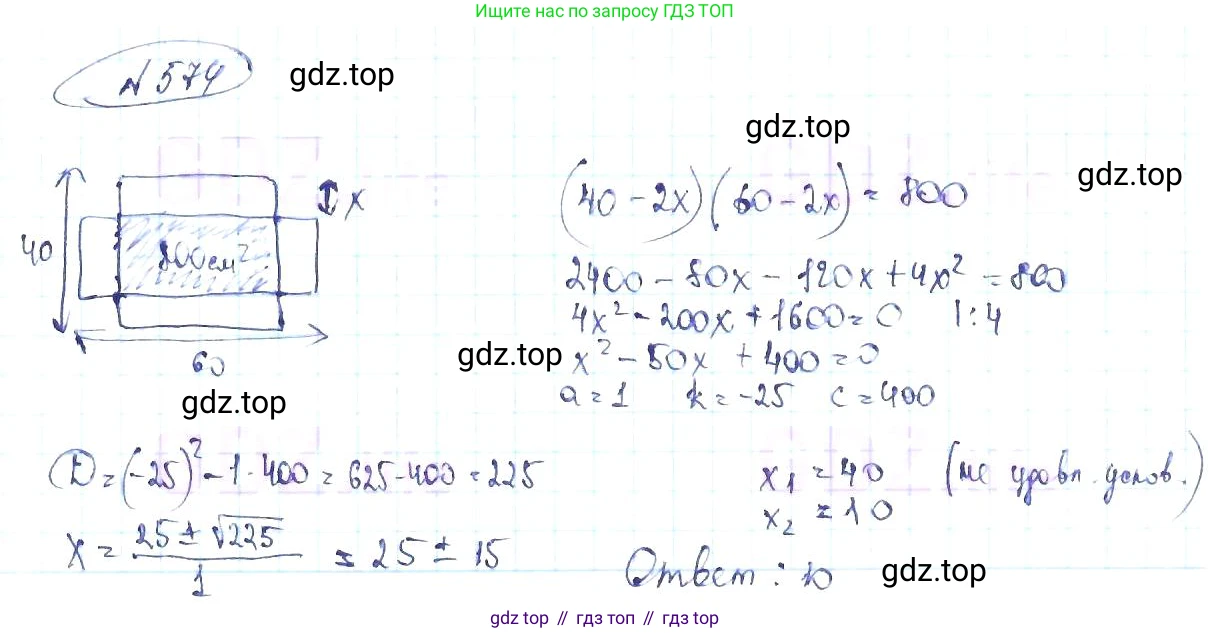 Ищите нас по запросу ГДЗ ТОП
N 574
gdz.top
gdz.top
gdz.top
x
40
800 см²
60
(40 - 2x)(60 - 2x) = 800
2400 - 80x - 120x + 4x² = 800
4x² - 200x + 1600 = 0 |:4
gdz.top
x² - 50x + 400 = 0
a = 1 k = -25 c = 400
gdz.top
D = (-25)² - 1·400 = 625 - 400 = 225
x₁ = 40 (не удовл. услов.)
x₂ = 10
x = (25 ± √225)/1 = 25 ± 15
Ответ: 10
gdz.top
gdz top // гдз топ // gdz top